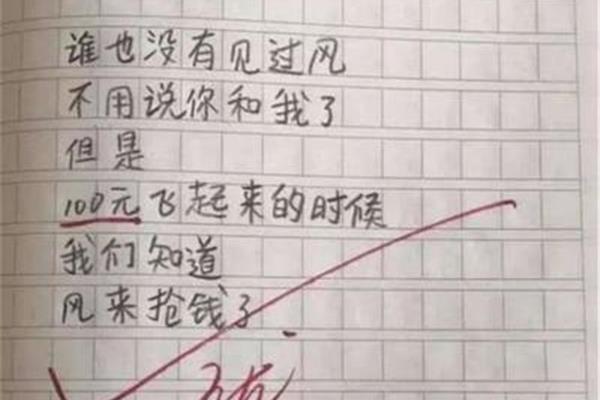 谁也没有见过风
不用说你和我了
但是
100元飞起来的时候
我们知道
风来抢钱了